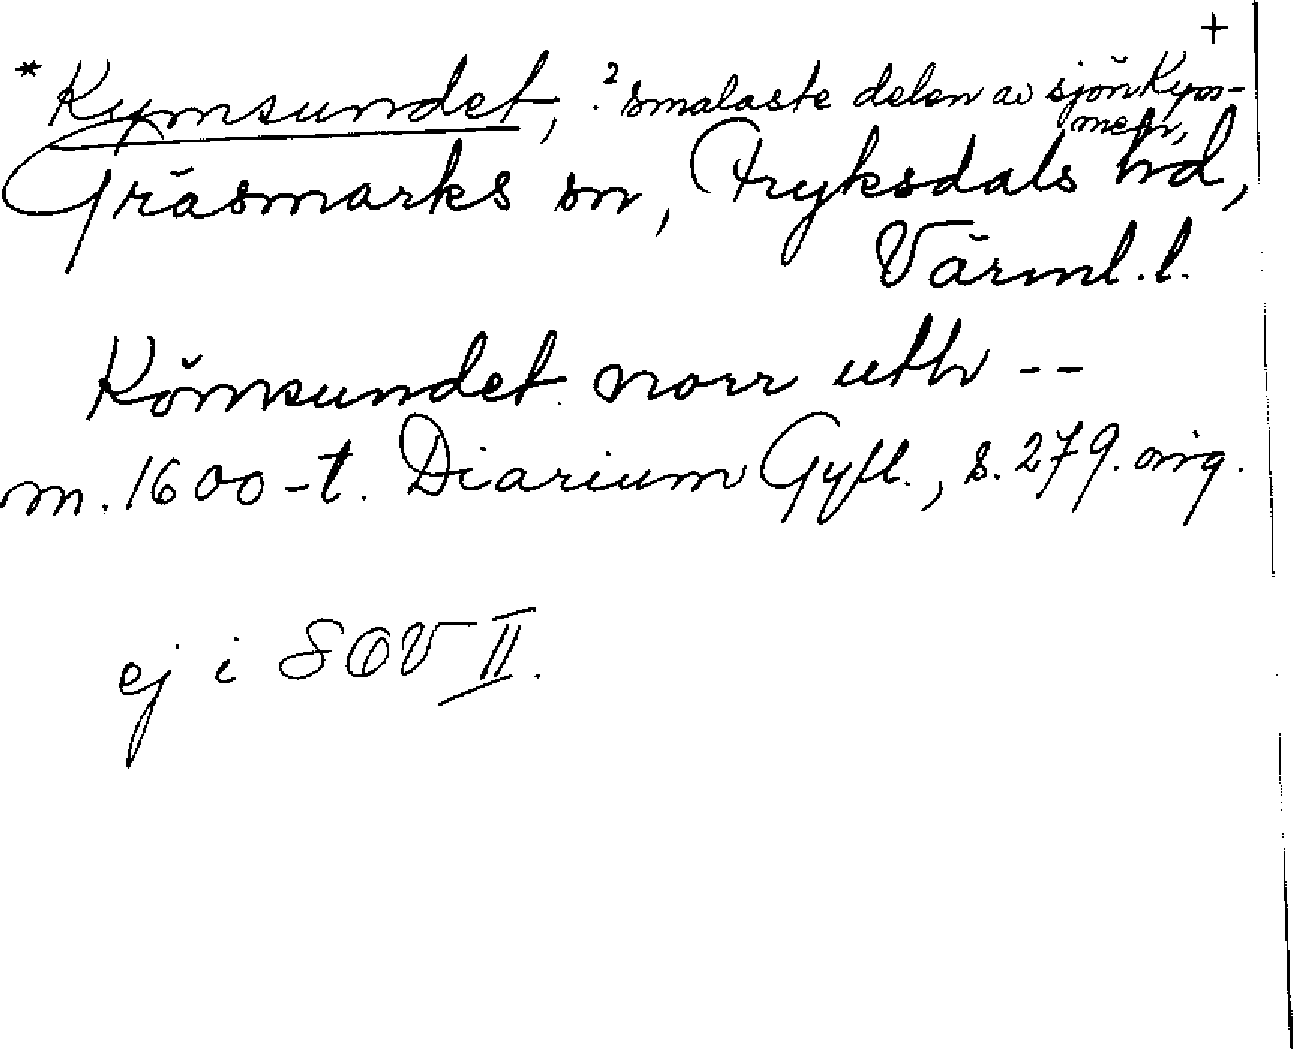 +
* Kymsundet, ? smalaste delen av sjön Kym-
men,
Gräsmarks sn, Fryksdals hd,
Värml. l.
Kömsundet norr uth --
m. 1600-t. Diarium Gyll., s. 279. orig.
ej i SOV II.